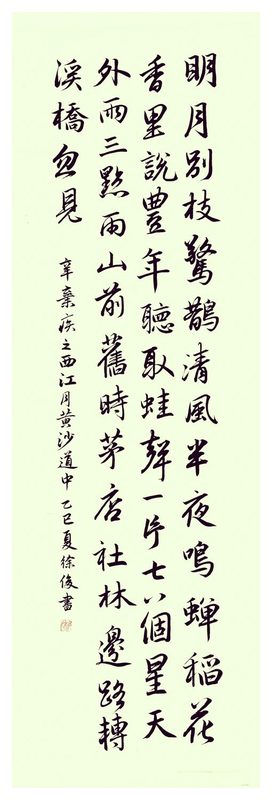 明月別枝驚鵲清風半夜鳴蟬稻花
香里說豐年聽取蛙聲一片七八個星天
外兩三點雨山前舊時茅店社林邊路轉
溪橋忽見
辛棄疾之西江月黃沙道中 乙巳夏徐俊書